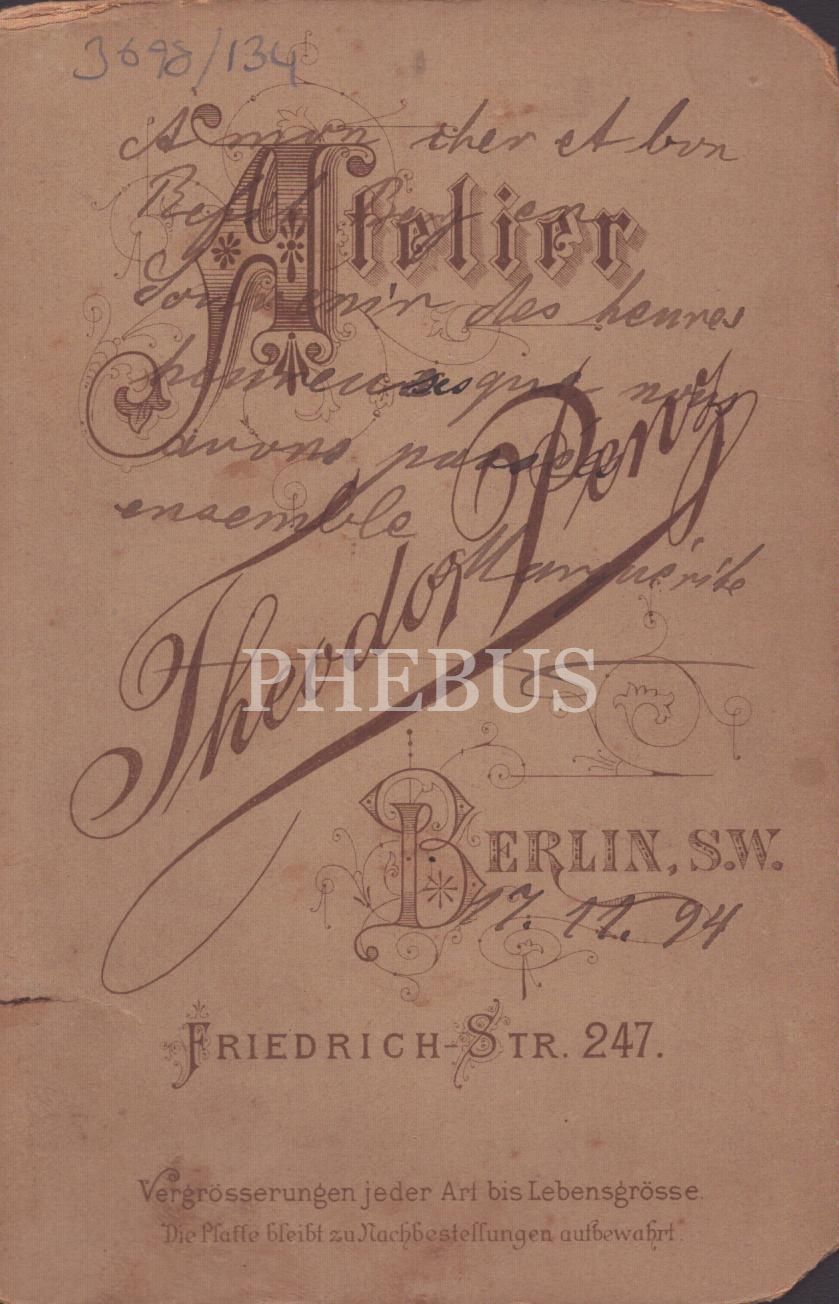 3698/134
A mon cher et bon
Bey en
Souvenir des heures
heureuses que nous
avons passées
ensemble
Marguérite
Atelier
Theodor Penz
PHEBUS
BERLIN, S.W.
17. 11. 94
FRIEDRICH-STR. 247.
Vergrösserungen jeder Art bis Lebensgrösse.
Die Platte bleibt zu Nachbestellungen aufbewahrt.